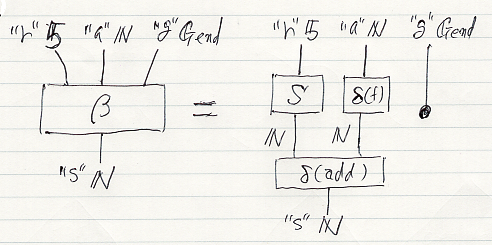 "r" 5 "a" ℕ "g" Gend = "r" 5 "a" ℕ "g" Gend
β S δ(f)
ℕ ℕ
"s" ℕ δ(add)
"s" ℕ